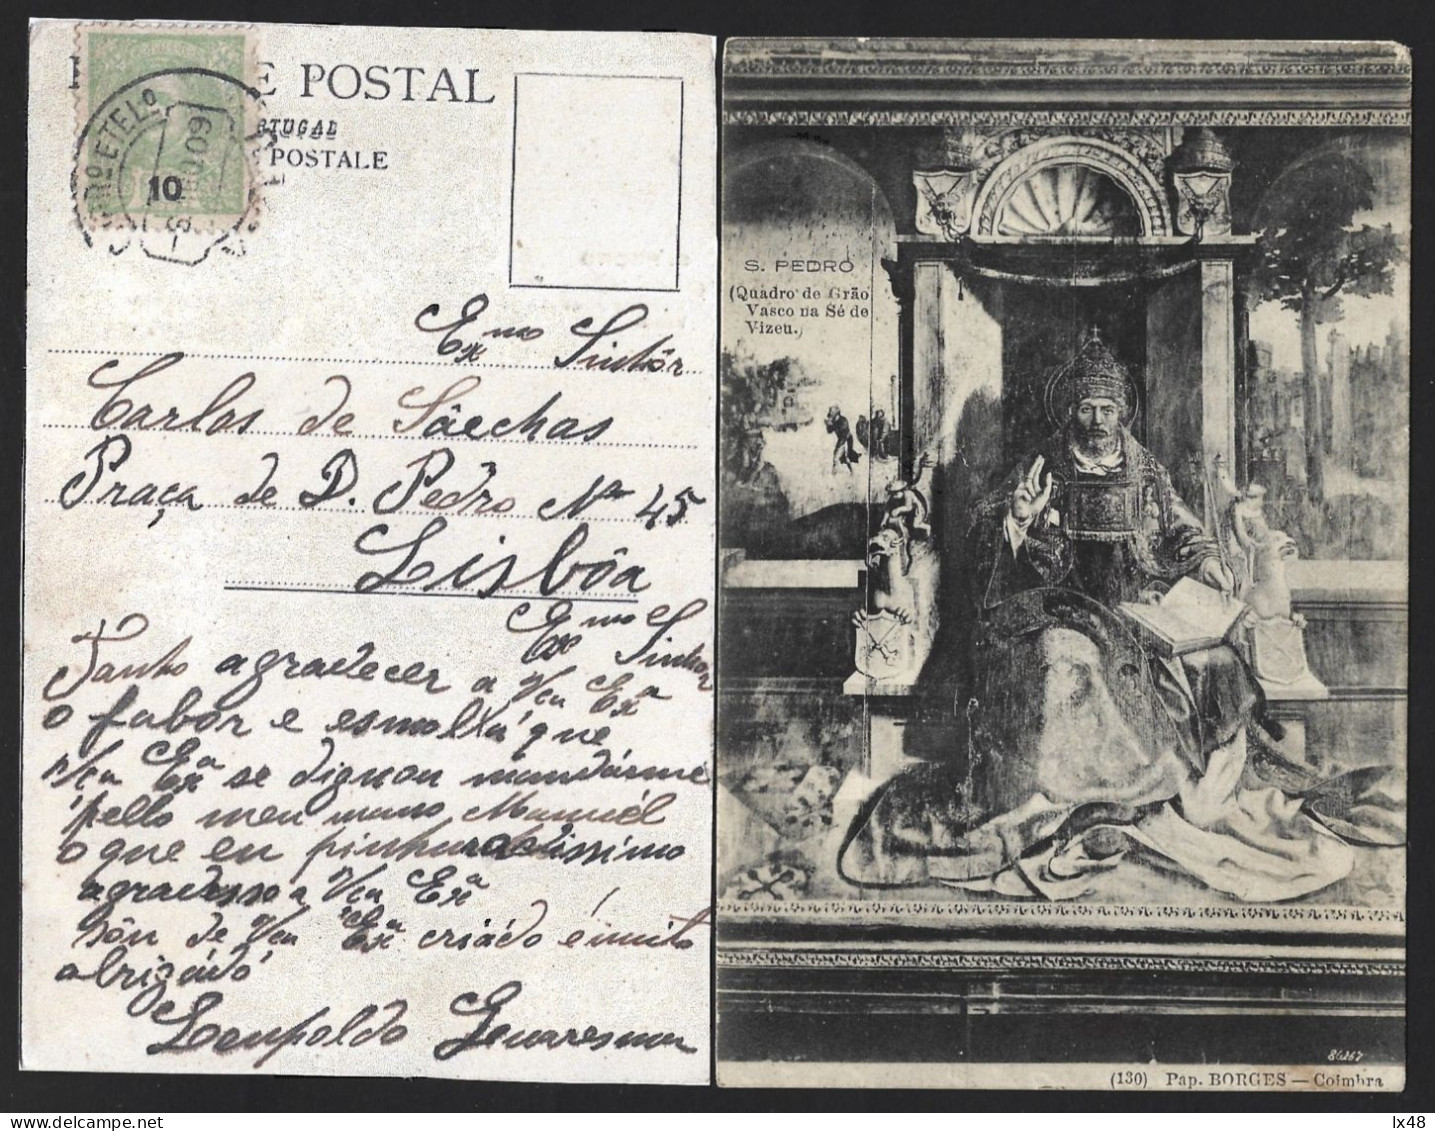 E POSTAL
RTUGAL
POSTALE
10
Exmo Sinhôr
Carlos de Sâechas
Praça de D. Pedro Nº 45
Lisbôa
Exmo Sinhor
Tanho agradecer a Vca Exa
o fabôr e esmolla que
Vca Exa se dignou mandárme
pello meu mano Manuél
o que eu pinhuradissimo
agradesso a Vca Exa
Sôu de Vca Exa criádo é muito
abrigádo
Leupoldo
S. PEDRO
(Quadro de Grão
Vasco na Sé de
Vizeu.)
84267
(130) Pap. BORGES — Coimbra
lx48